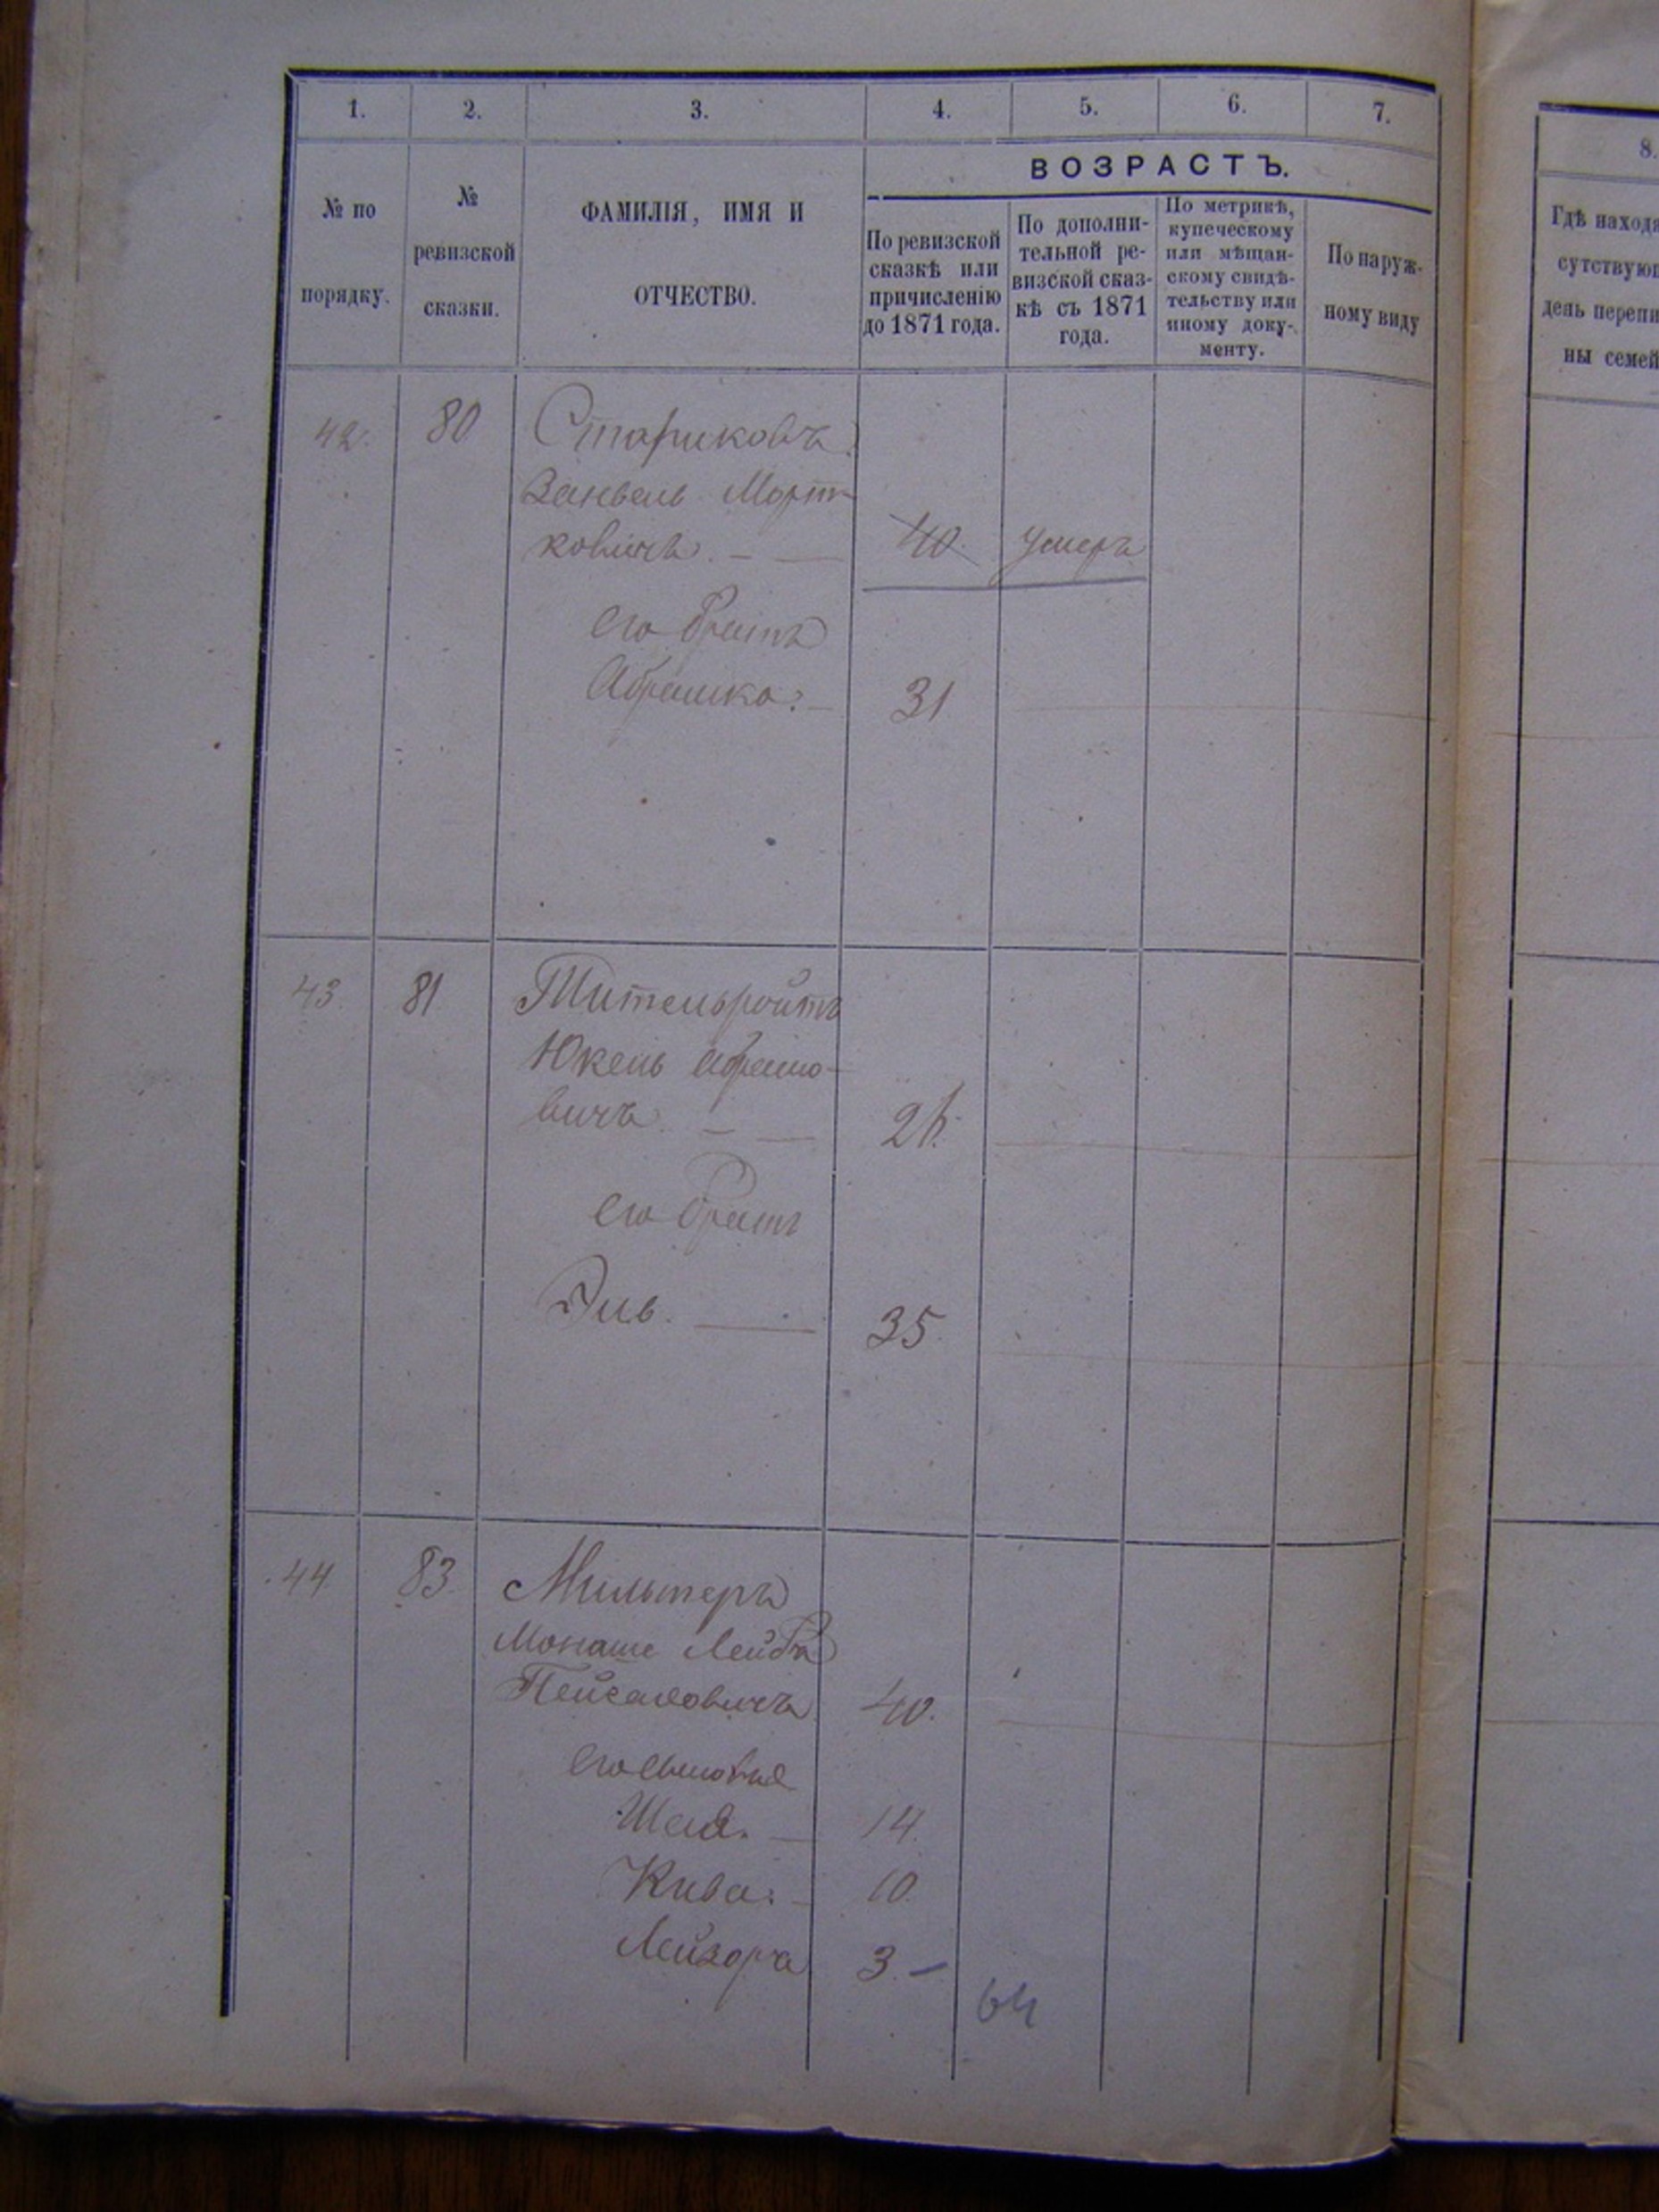 1.
2.
3.
4.
5.
6.
7.
8.
№ по
порядку.
№
ревизской
сказки.
ФАМИЛІЯ, ИМЯ И
ОТЧЕСТВО.
ВОЗРАСТЪ.
По ревизской
сказкѣ или
причисленію
до 1871 года.
По дополни-
тельной ре-
визской сказ-
кѣ съ 1871
года.
По метрикѣ,
купеческому
или мѣщан-
скому свидѣ-
тельству или
иному доку-
менту.
По наруж-
ному виду
Гдѣ наход
сутствую
день переп
ны семей
42. 80 Стариковъ
Занвель Морт-
ковичъ. — — 40. умеръ
его братъ
Абрашка. — 31
43. 81 Тительройтъ
Юкель Абрамо-
вичъ. — —
его братъ
Эль. — 35
44 83. Мильтеръ
Монаше Лейба
Пейсаховичъ 40.
его сыновья
Шая. — 14.
Кива. — 10.
Лейзоръ 3. —
64